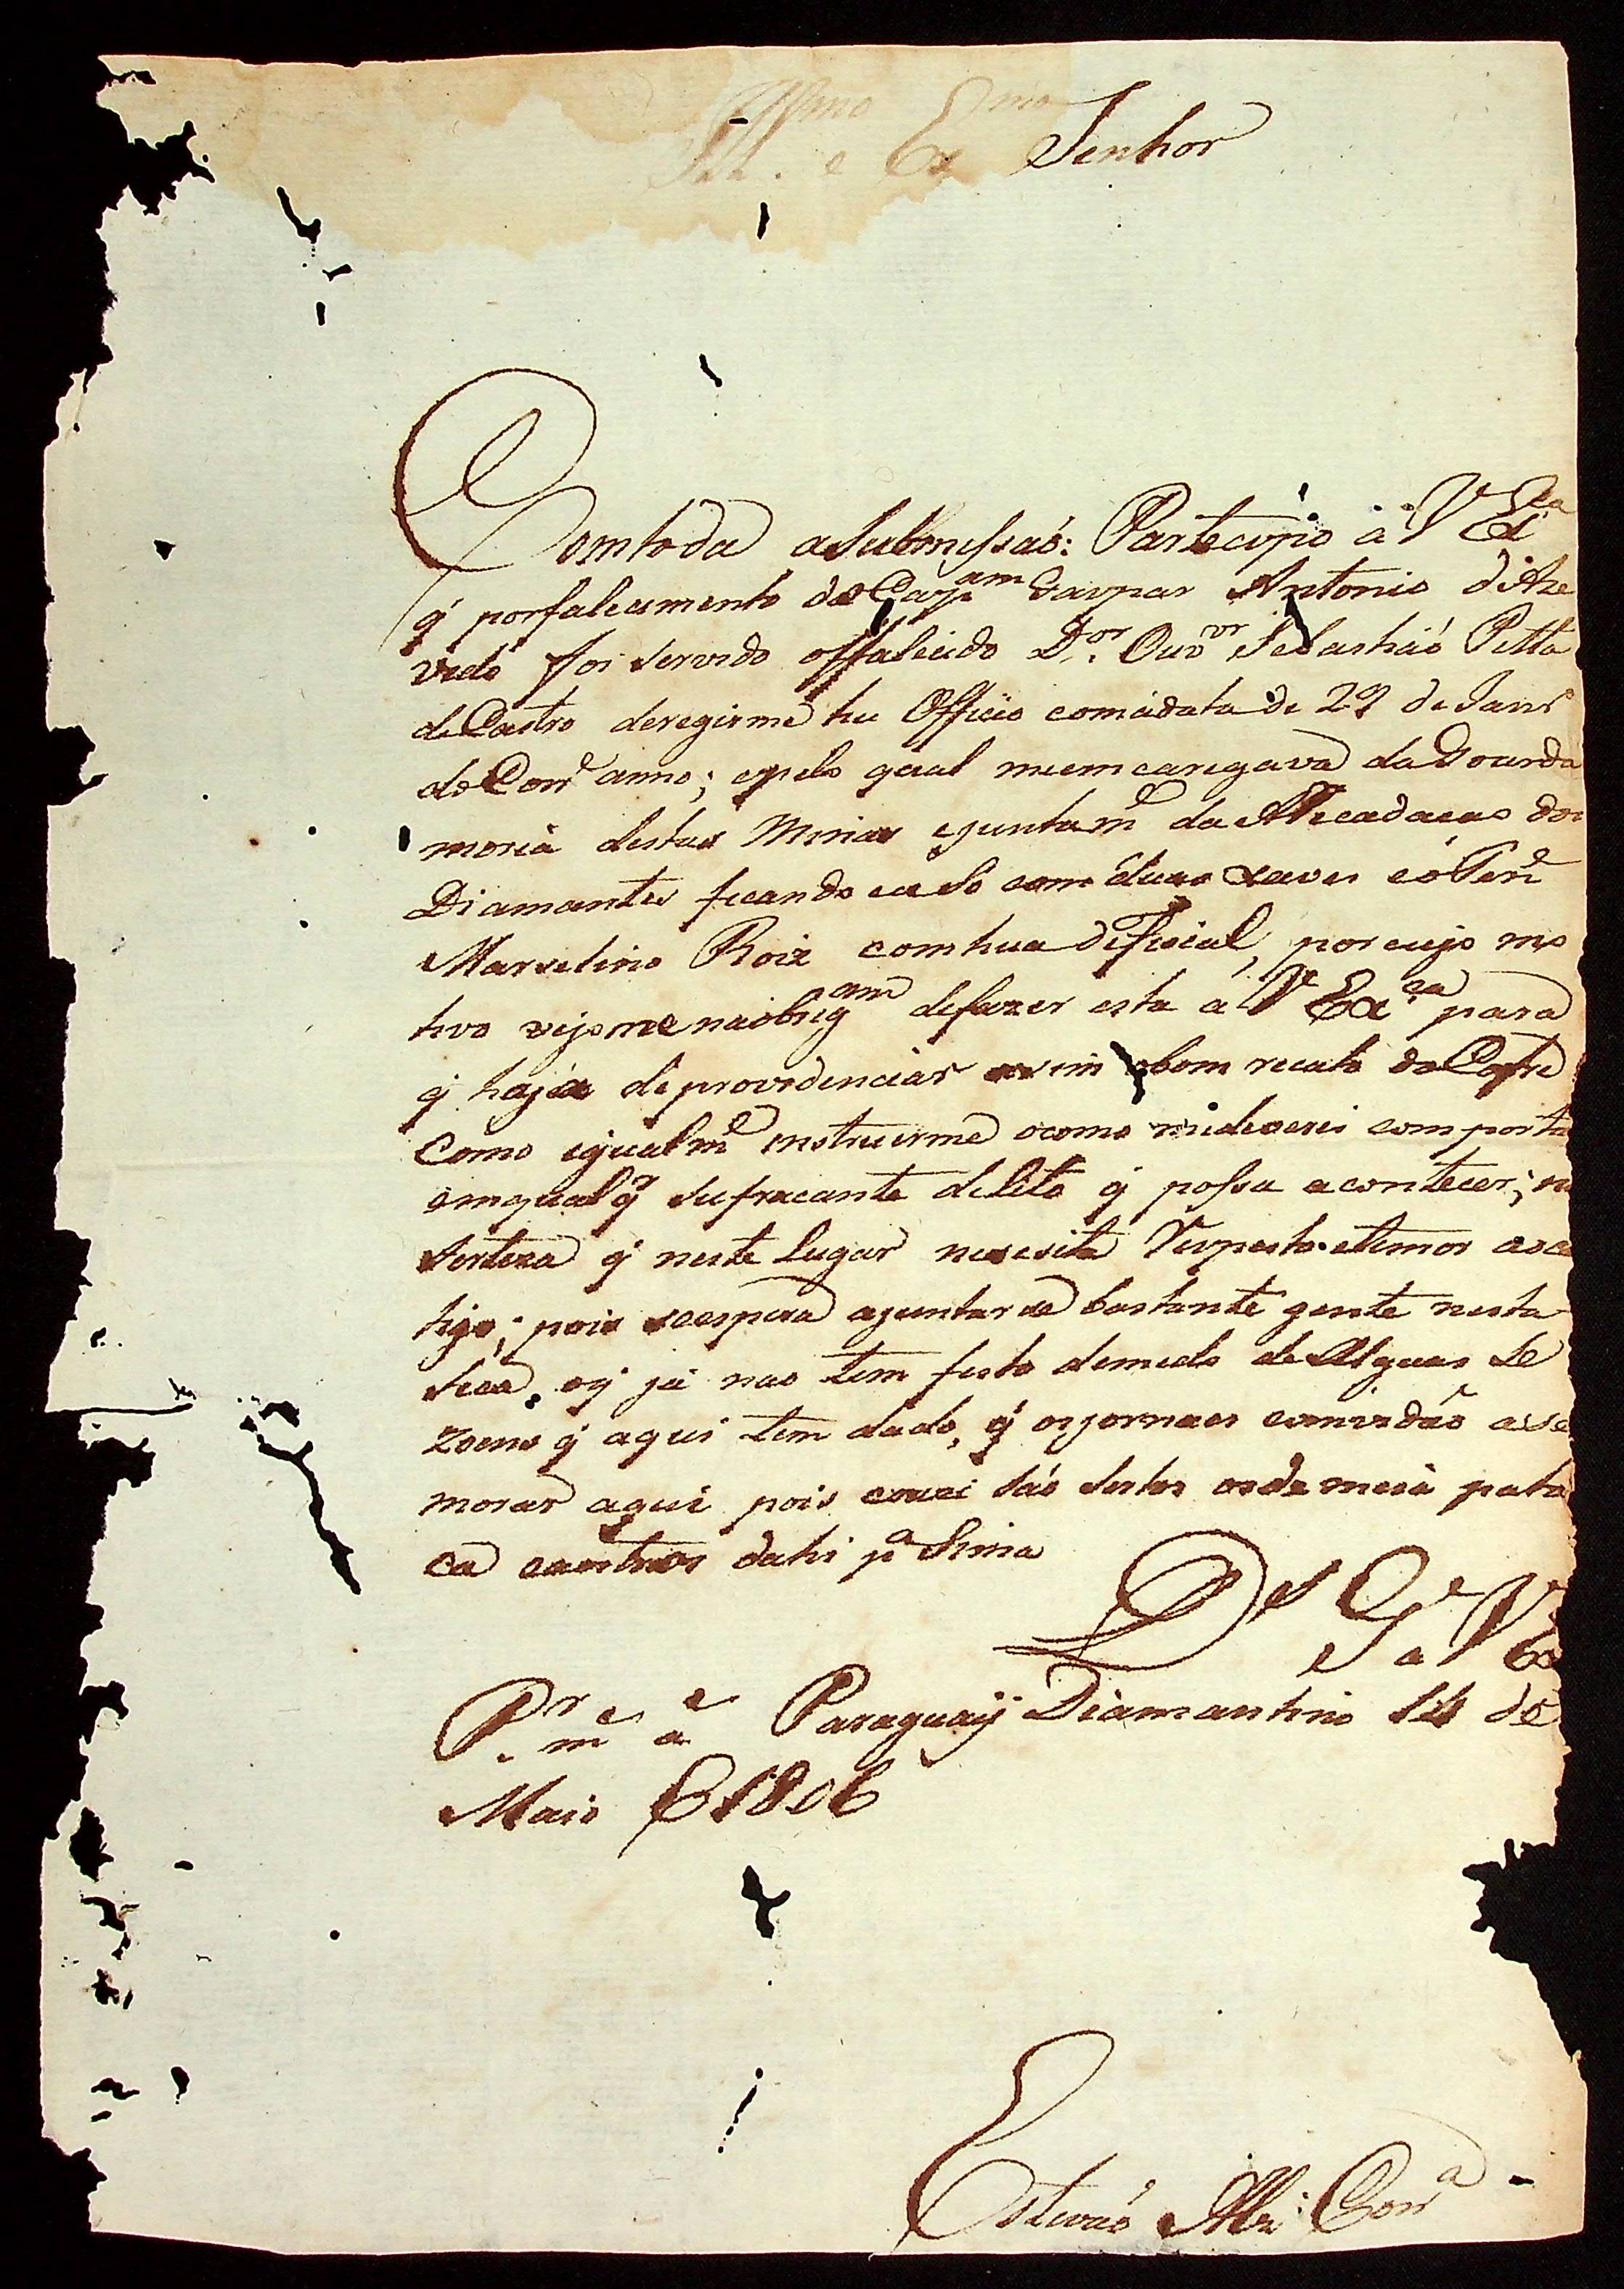 Illmo e Exmo Senhor
Comtoda aSubmissaó: Partecipo á V Exca
q' porfalecimento do Capam Gaspar Antonio d'Aze
vedo foi servido offalecido Dor. Ouvor Sebastiaó Pitta
deCastro deregirme hu Officio comádata de 29 de Janro
doCorre anno; epelo qual meemcaregava da Goarda
moria destas Minas ejuntame da ARecadacao dos
Diamantes ficando eu só com duas xaves eoTene
Marselino Roiz comhua difisial, porcujo mo
tivo vejome naóbrigam defazer esta á V Exca para
q' haja deprovidenciar asim obom recato doCofre
Como igualme instruirme ocomo mideverei comporta
emqualqr sufracante delito q' possa acontecer; n
serteza q' neste Lugar nesesita Respeito etemor aoca
tigo; pois seespera ajuntarse bastante gente nesta
seca, eq' já nao tem feito demedo deAlguas Se
zoens q' aqui tem dado, q' osjornaes comvidaó ase
morar aqui pois cauzi saó sertos osde meia pata
ca eoutros dahi pa Sima
Ds Ge
a V Ex
Pr me ae Paraguaÿ Diamantino 14 de
Maio E 1806
Estevaó Alz: Corra